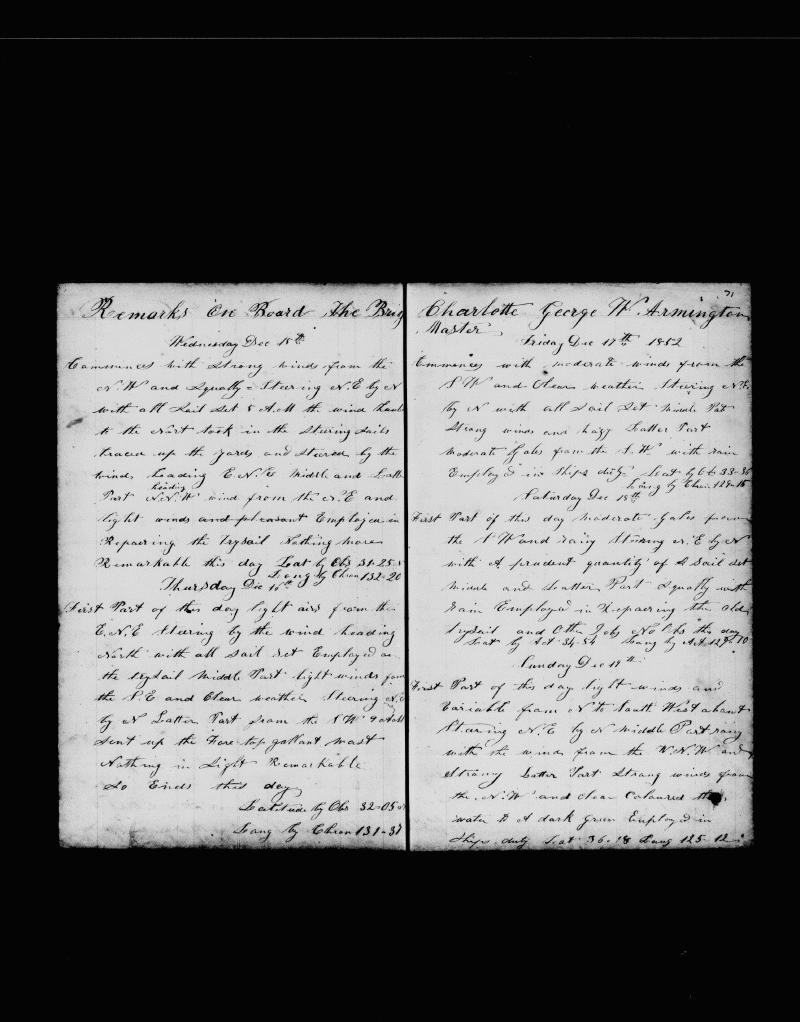 Remarks On Board The Brig
Wednesday Dec 15th
Commences with Strong winds from the
N.W and Squally = Stearing N.E by N
with all Sail Set 5 A.M the wind
to the Nort took in the Stering Sails
braced up the yards and Steered by the
winds heading E.N.E Middle and Latter
heading
Part N.N.W wind from the N.E and
light winds and pleasant Employed in
Repairing the trysail Nothing more
Remarkable this day Lat by Obs 31-25 N
Long by Chron 132-20
Thursday Dec 16th
First Part of this day light airs from the
E.N.E Stearing by the wind heading
North with all Sail Set Employed on
the trysail Middle Part light winds from
the S.E and Clear weather Stearing N.E
by N Latter Part from the S.W
Sent up the Fore top gallant mast
Nothing in Sight Remarkable
So Ends this day
Latitude by Obs 32-05 N
Long by Chron 131-37
71
Charlotte George W Armington
Master
Friday Dec 17th 1852
Commences with moderate winds from the
S.W and Clear weather Stearing N.E
by N with all Sail Set Middle Part
Strong winds and hazy Latter Part
Moderate Gales from the S.W with rain
Employed in Ships duty Lat by Ob 33-36
Long by Chron 129-15
Saturday Dec 18th
First Part of this day moderate Gales from
the S.W and rainy Stearing N.E by N
with A prudent quantity of Sail Set
Middle and Latter Part Squally with
rain Employed in Repairing the old
trysail and Other Jobs No Obs this day
Lat by Act 34-54 Long by Act 127-10
Sunday Dec 19th
First Part of this day light winds and
Variable from N to South West abant
Stearing N.E by N Middle Part rainy
with the winds from the W.N.W and
Strong Latter Part Strong winds from
the N.W and clear Coloured the
water to A dark green Employed in
Ships duty Lat 36-18 Long 125-12